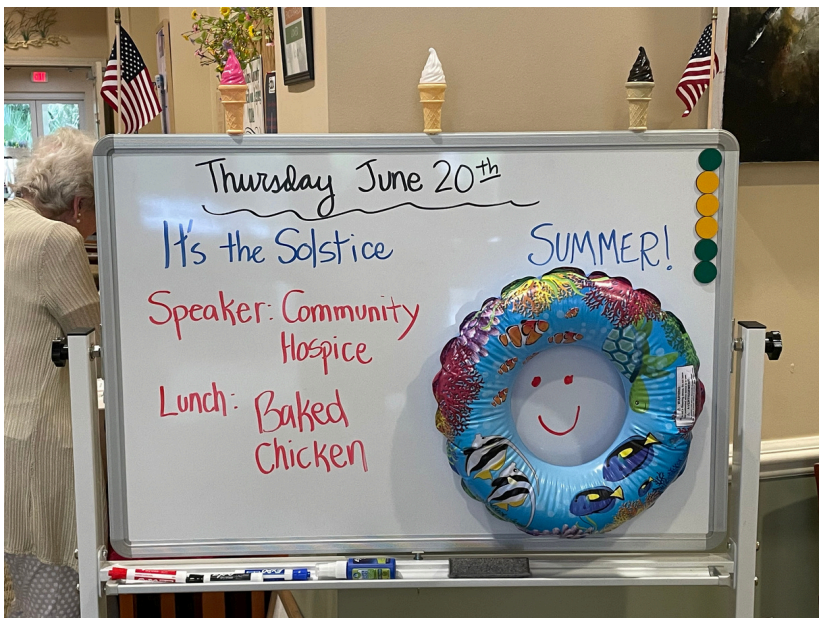 Thursday June 20th
It's the Solstice
SUMMER!
Speaker: Community
Hospice
Lunch: Baked
Chicken